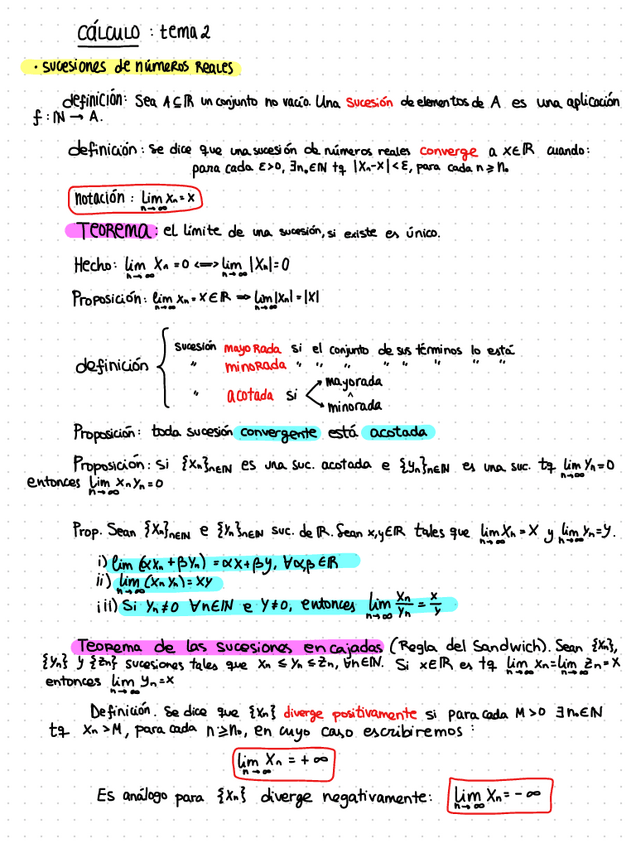 CÁLCULO : tema 2
· sucesiones de números reales
definición: Sea A ⊆ ℝ un conjunto no vacío. Una sucesión de elementos de A es una aplicación
f : ℕ → A.
definición: Se dice que una sucesión de números reales converge a x∈ℝ cuando:
para cada ε>0, ∃n₀∈ℕ tq |Xₙ-X|<ε, para cada n ≥ n₀
notación : lim Xₙ = x
n→∞
TEOREMA: el límite de una sucesión, si existe es único.
Hecho: lim Xₙ = 0 <=> lim |Xₙ| = 0
n→∞ n→∞
Proposición: lim Xₙ = X ∈ ℝ => lim |Xₙ| = |X|
n→∞ n→∞
definición { sucesión mayorada si el conjunto de sus términos lo está
" minorada " " " " " " " "
" acotada si < mayorada
^
minorada
Proposición: toda sucesión convergente está acotada
Proposición: si {Xₙ}ₙ∈ℕ es una suc. acotada e {yₙ}ₙ∈ℕ es una suc. tq lim Yₙ = 0
n→∞
entonces lim XₙYₙ = 0
n→∞
Prop. Sean {Xₙ}ₙ∈ℕ e {Yₙ}ₙ∈ℕ suc. de ℝ. Sean x,y∈ℝ tales que lim Xₙ = X y lim Yₙ = Y.
n→∞ n→∞
i) lim (αXₙ + βYₙ) = αX + βy, ∀α,β ∈ ℝ
n→∞
ii) lim (Xₙ Yₙ) = XY
n→∞
iii) Si Yₙ ≠ 0 ∀n∈ℕ e Y ≠ 0, entonces lim Xₙ/Yₙ = x/y
n→∞
Teorema de las sucesiones encajadas (Regla del Sandwich). Sean {Xₙ},
{Yₙ} y {Zₙ} sucesiones tales que Xₙ ≤ Yₙ ≤ Zₙ, ∀n∈ℕ. Si x∈ℝ es tq lim Xₙ = lim Zₙ = X
n→∞ n→∞
entonces lim Yₙ = X
n→∞
Definición. Se dice que {Xₙ} diverge positivamente si para cada M>0 ∃n₀∈ℕ
tq Xₙ > M, para cada n ≥ n₀, en cuyo caso escribiremos :
lim Xₙ = + ∞
n→∞
Es análogo para {Xₙ} diverge negativamente: lim Xₙ = - ∞
n→∞